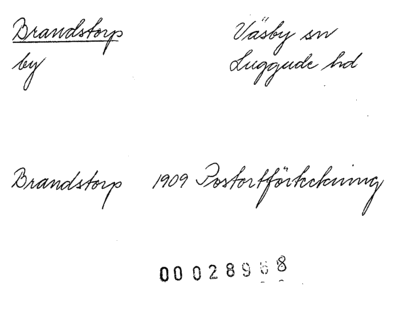 Brandstorp Väsby sn
by Luggude hd
Brandstorp 1909 Postortförteckning
00028968